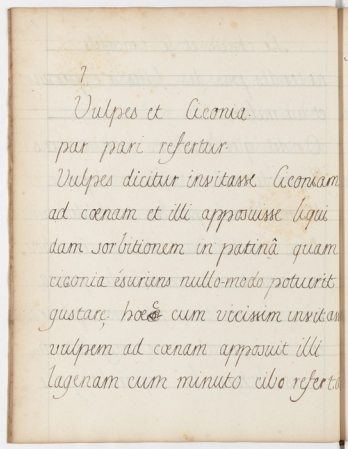 7
Vulpes et Ciconia.
par pari refertur.
Vulpes dicitur invitasse Ciconiam
ad cœnam et illi apposuisse liqui
dam sorbitionem in patinâ quam
ciconia ésuriens nullo-modo potuerit
gustare; hœc cum vicissim invitas
vulpem ad cœnam apposuit illi
lagenam cum minuto cibo referta